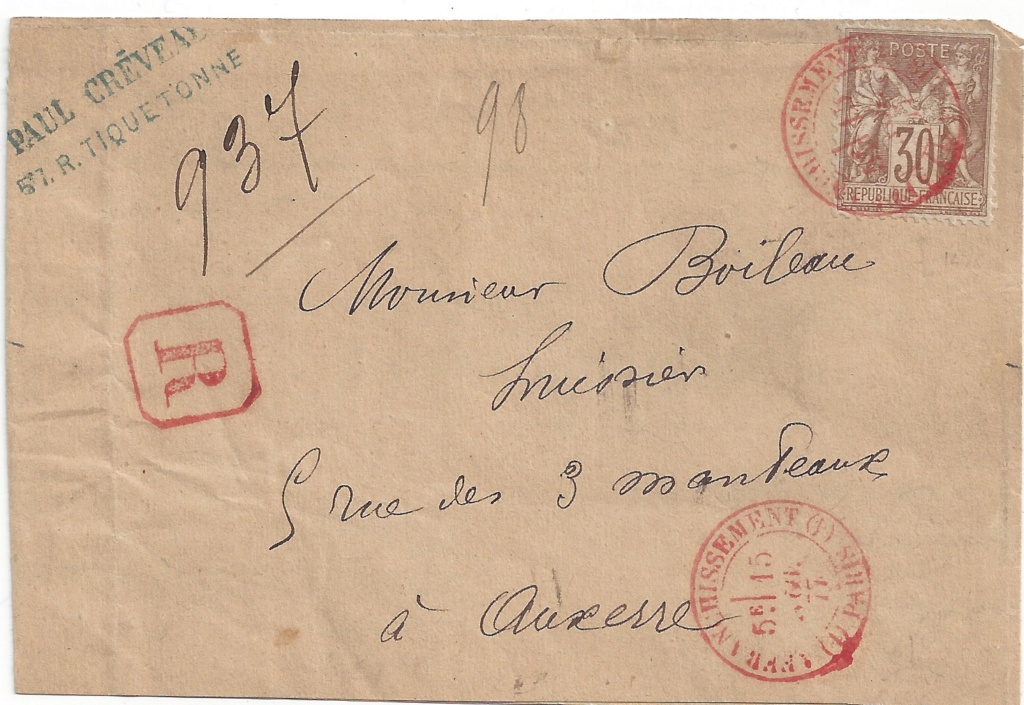 PAUL CRÉVEA
57. R. TIQUETONNE
937
98
POSTE
30
REPUBLIQUE FRANCAISE
R
Monsieur Boileau
huissier
5 rue des 3 manteaux
à Auxerre
AFFRANCHISSEMENTS (1) PARIS (1)
5E 15
77